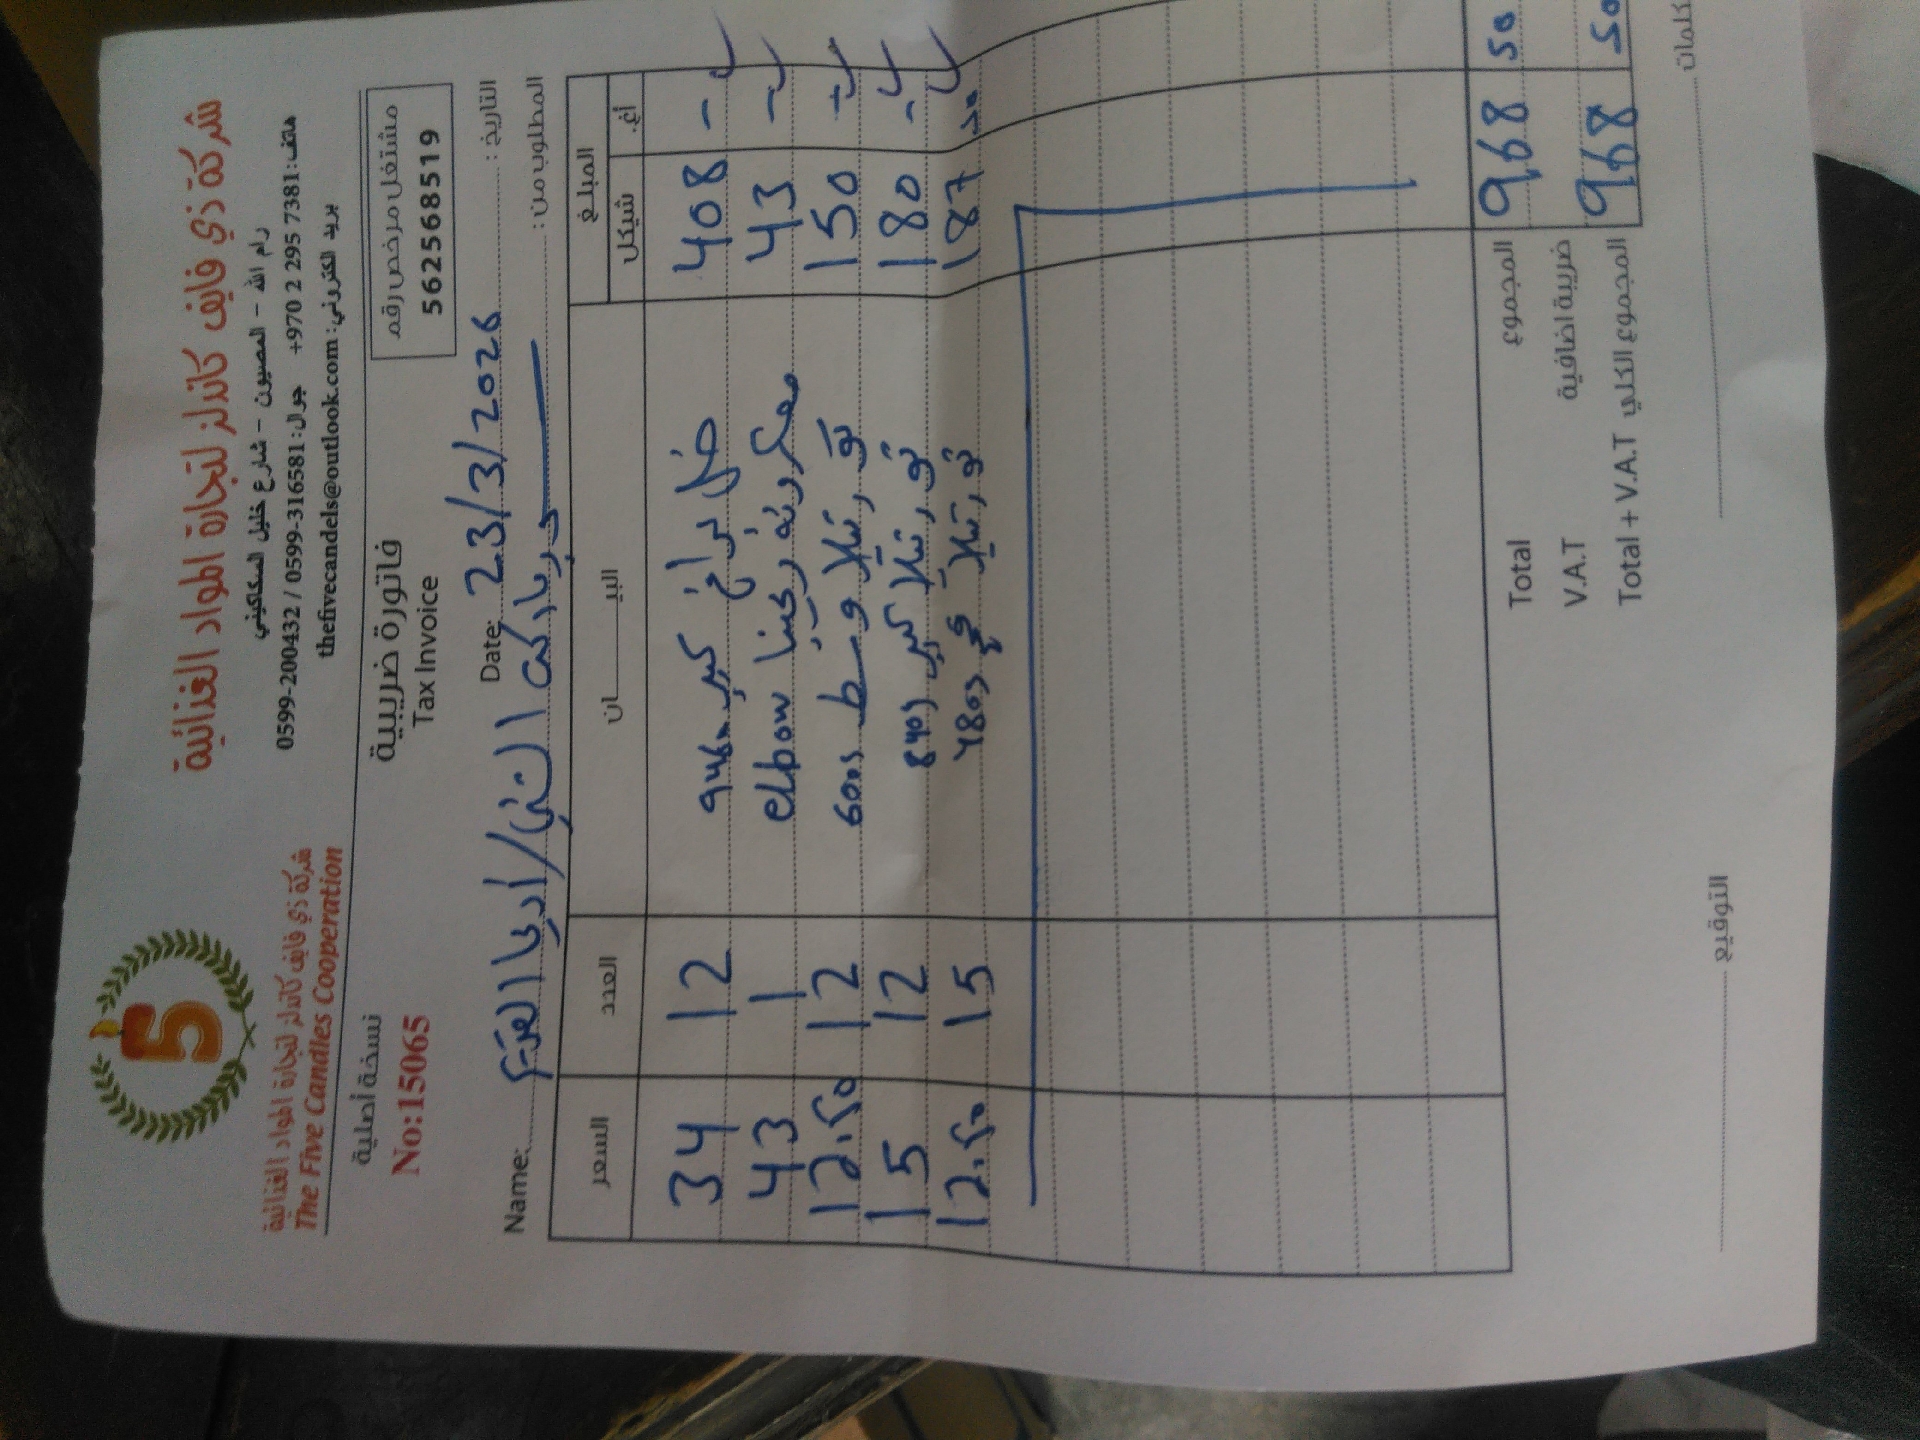 شركة ذي فايف كاندلز لتجارة المواد الغذائية
رام الله - المصيون - شارع خليل السكاكيني
هاتف: +970 2 295 7381 جوال: 0599-200432 / 0599-316581
بريد الكتروني: thefivecandels@outlook.com
5
شركة ذي فايف كاندلز لتجارة المواد الغذائية
The Five Candles Cooperation
مشتغل مرخص رقم
562568519
فاتورة ضريبية
Tax Invoice
نسخة أصلية
No:15065
التاريخ: Date: 23/3/2026
المطلوب من: Name:
المبلغ البيــــــان العدد السعر
أغ. شيكل
- 408 كبير 12 34
- 43 elbow 1 43
- 150 600 12 12.50
- 180 كبير 840 12 15
50 187 480 15 12.50
50 968 المجموع Total
ضريبة اضافية V.A.T
50 968 المجموع الكلي Total + V.A.T
كلمات
التوقيع